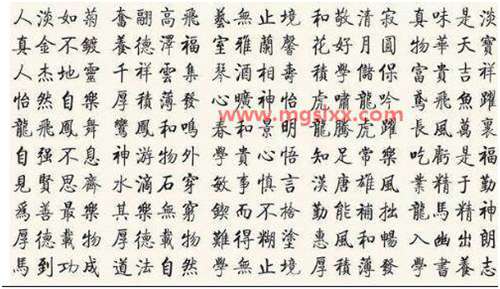 人淡如菊 奮翮高飛 藝無止境 和敬清寂 真味是淡
真金不鍍 養德澤福 室雅蘭馨 花好月圓 物華天寶
人杰地靈 千祥雲集 琴酒相壽 積學儲保 富貴吉祥
怡然自樂 厚積薄發 心曠神怡 虎嘯龍吟 鳶飛魚躍
www.mgsixx.com
龍飛鳳舞 鸞鳳和鳴 春和景明 龍騰虎躍 長風萬裏
自强不息 神游物外 學貴心悟 知足常樂 吃虧是福
見賢思齊 水滴石穿 敏事慎言 漢唐雄風 業精于勤
爲善最樂 其樂無窮 鍥而不捨 勤能補拙 龍馬精神
厚德載物 厚德載物 難得糊塗 惠風和暢 入幽出朗
馬到功成 道法自然 學無止境 厚積薄發 學書養志